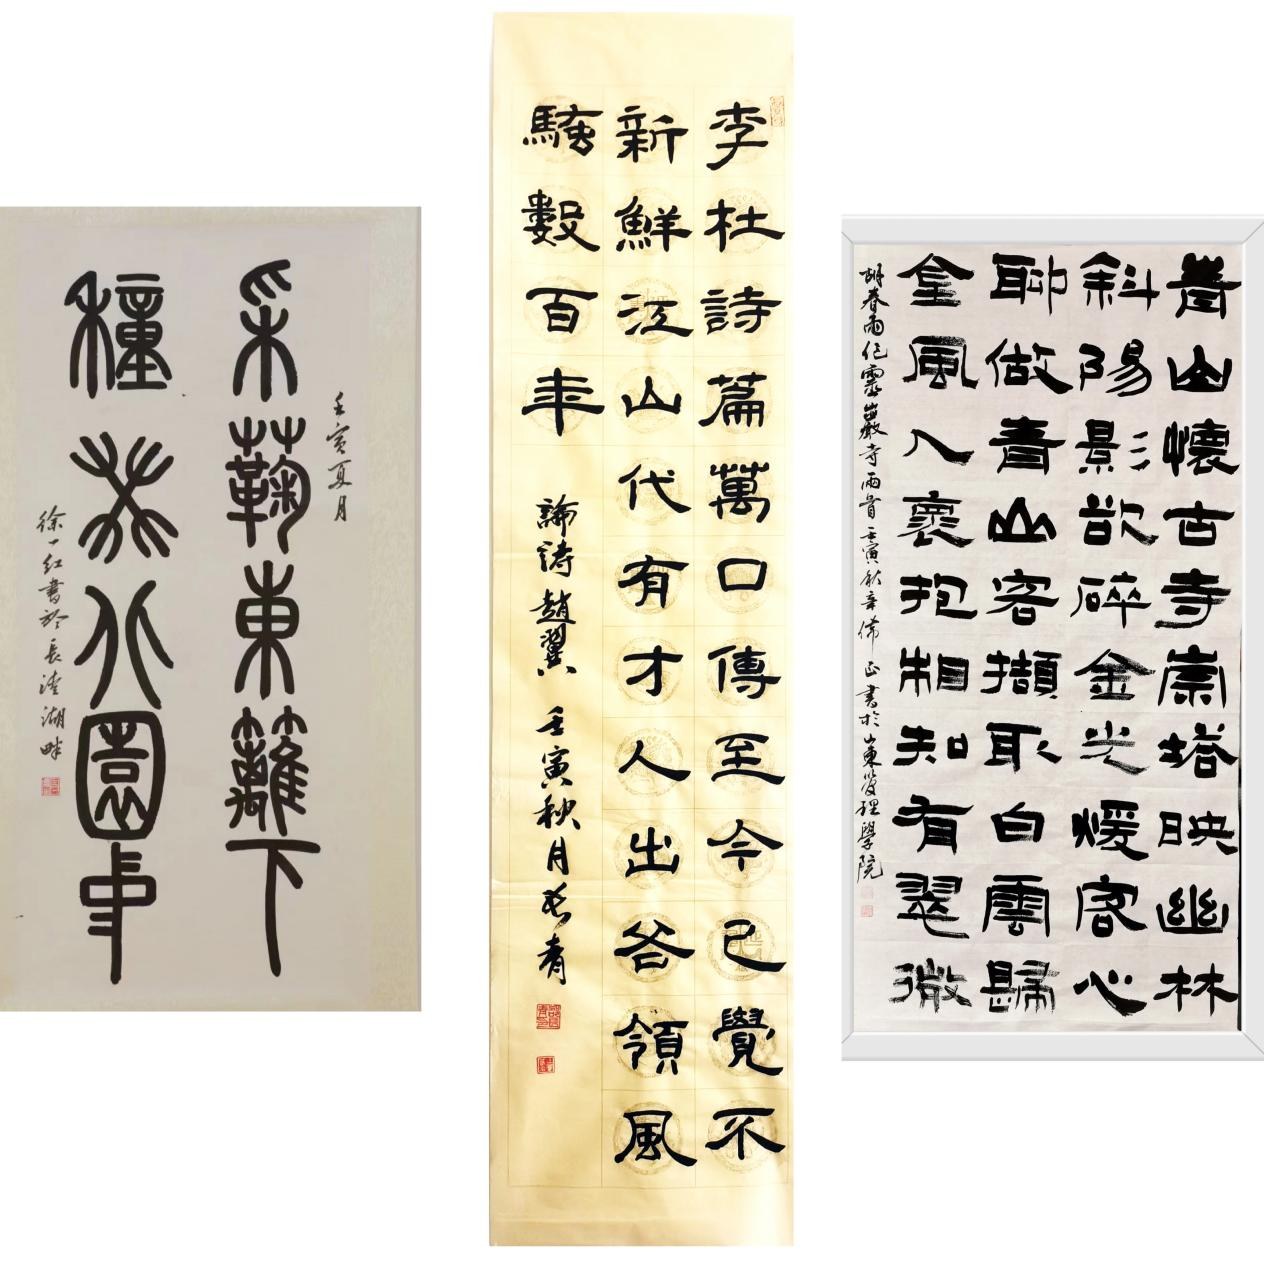 采蘜東籬下
種園事
壬寅夏月
徐一紅書於長清湖畔
李杜詩篇萬口傳至今已覺不
新鮮江山代有才人出各領風
騷數百年
論詩趙翼 壬寅秋月長青
山懷古寺崇塔映幽林
斜陽影欲碎金光煖客心
聊做青山客擷取白雲歸
金風入褱抱相知有翠微
胡春雨作靈巖寺兩首 壬寅秋辛 正書於山東管理學院